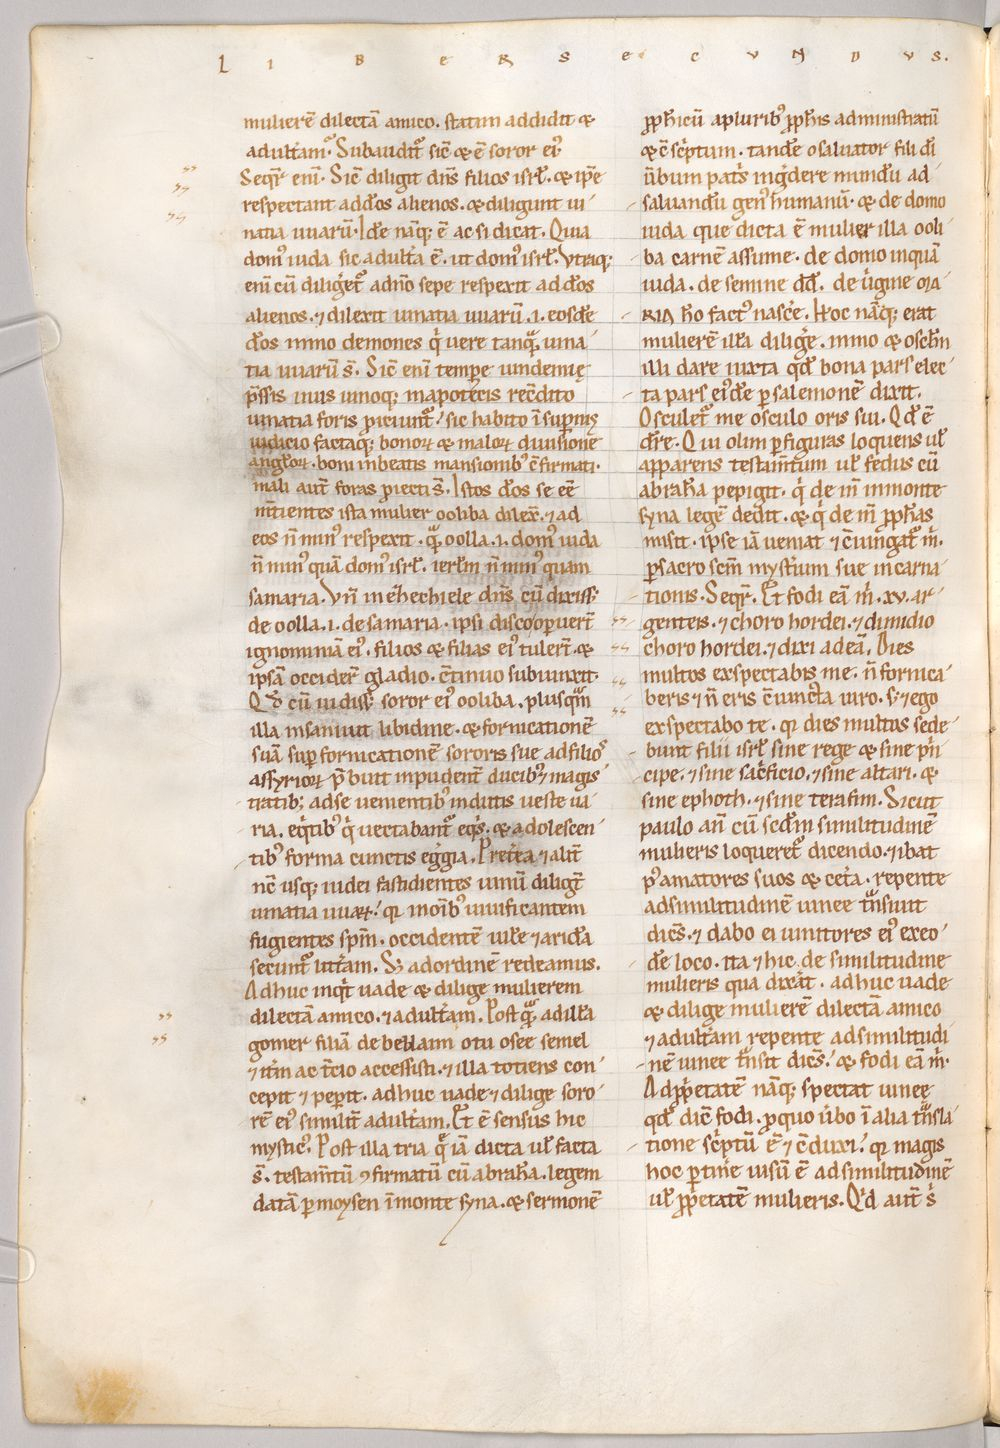 LIBER SECUNDUS.
mulierē dilectā amico. statim addidit &
adult̄am. Subaudit᷑ sic̄ & ē soror ei᷒
Seq̄r eni᷒. Sic̄ diligit dn̄s filios isrl̄. & ip̄e
respectant ad dōs alienos. & diligunt ui
natia uuarū. Id̄e nāq; ē ac si dicat. Quia
dom᷒ iuda sic adult̄a ē. ut dom᷒ isrl̄. Vtraq;
eni᷒ cū diliget᷑ a dn̄o sepe respexit ad dōs
alienos. ⁊ dilexit uinatia uuarū .i. eosd̄e
dōs immo demones q̄ uere tanq̄ uina
tia uuarū s̄. Sic̄ eni᷒ temp̄e uindemię
p̄ssis uuis uinoq; in apotecis recōdito
uinatia foris piciunt᷑. sic habito ī supnis
iudicio factaq; bonoꝝ & maloꝝ diuisione
angl̄oꝝ. boni in beatis mansionib᷒ c̄firmati.
mali aut̄ foras proiecti s̄. Istos dōs se eē
m̄tientes ista mulier ooliba dilex̄. ⁊ ad
eos n̄ min᷒ respexit. q̄ oolla .i. dom᷒ iuda
n̄ min᷒ quā dom᷒ isrl̄. ierl̄m n̄ min᷒ quam
samaria. Vn̄ in ezechiele dn̄s cū dixiss;
de oolla .i. de samaria. ipsi discooperuer̄t
ignominiā ei᷒. filios & filias ei᷒ tuler̄t. &
ipsā occider̄t gladio. c̄tinuo subiunxit.
Qd̄ cū uidiss; soror ei᷒ ooliba. plusq̄m
illa insaniuit libidine. & fornicationē
suā sup fornicationē sororis sue ad filios
assyrioꝝ p̄buit inpudent᷑ ducib᷒ ⁊ magis
tratib; ad se uenientib᷒ indutis ueste ua
ria. eq̄tib᷒ q̄ uectabant᷑ eq̄s. & adolescen
tib᷒ forma cunctis egḡia. Pret̄ea ⁊ alit̄
nc̄ usq; iudei fastidientes uinū diligt̄
uinatia uuaꝝ. q̄ moĩb᷒ uiuificantem
fugientes spm̄. occidentē uil̄e ⁊ arida
secunt᷑ litt̄am. Sꝫ ad ordinē redeamus.
Adhuc inq̄t uade & dilige mulierem
dilectā amico. ⁊ adult̄am. Post q̄ ad illā
gomer filiā debelaim o tu osee semel
⁊ it̄m ac t̄cio accessisti. ⁊ illa totiens con
cepit ⁊ pep̄it. adhuc uade ⁊ dilige soro
rē ei᷒ similit̄ adult̄am. Et ē sensus hic
mystic᷒. Post illa tria q̄ iā dicta ul̄ facta
s̄. testam̄tū ꝯfirmatū cū abraha. legem
datā p moysen ī monte syna. & sermonē
pph̄icū a plurib᷒ pph̄is administratū
& ē sc̄ptum. tand̄e o saluator fili dī
ūbum pat̄s inḡdere mundū ad
saluandū gen᷒ humanū. & de domo
iuda que dicta ē mulier illa ooli
ba carnē assume. de domo inquā
iuda. de semine dd̄. de ūgine MA
RIA ho fact᷒ nasc̄e. Hoc nāq; erat
mulierē illā dilige. immo & osc̄m
illi dare iuxta qd̄ bona pars elec
ta pars ei᷒d̄e p salemonē dixit.
Osculet᷑ me osculo oris sui. Qd̄ ē
dc̄re. Qui olim p figuras loquens ul̄
apparens testam̄tum ul̄ fedus cū
abraha pepigit. q̄ de m̄ in monte
syna legē dedit. & q̄ de m̄ pph̄as
misit. ipse iā ueniat ⁊ c̄iungat᷑ m̄.
p sacro scm̄ myst̄ium sue incarna
tionis. Seq̄r. Et fodi eā m̄ .xv. ar
genteis. ⁊ choro hordei. ⁊ dimidio
choro hordei. ⁊ dixi ad eā. Dies
multos exspectabis me. n̄ fornica
beris ⁊ n̄ eris c̄iuncta uiro. sꝫ ⁊ ego
exspectabo te. q̄ dies multos sede
bunt filii isrl̄ sine rege & sine p̄n
cipe. ⁊ sine sac̄ficio. ⁊ sine altari. &
sine ephoth. ⁊ sine terafim. Sicut
paulo an̄ cū scd̄m similitudinē
mulieris loqueret᷑ dicendo. ⁊ ibat
p᷒ amatores suos & cet̄a. repente
ad similitudinē uinee t̄nsiuit
dic̄s. ⁊ dabo ei uinitores ei᷒ ex eo
d̄e loco. ita ⁊ hic de similitudine
mulieris qua dix̄at. adhuc uade
& dilige mulierē dilectā amico
⁊ adult̄am repente ad similitudi
nē uinee t̄nsit dic̄s. & fodi eā m̄.
Ad pp̄etatē nāq; spectat uinee
qd̄ dic̄ fodi. p quo ūbo ī alia t̄nsla
tione sc̄ptū ē ⁊ c̄duxi. q̄ magis
hoc p̄tin̄e uisū ē ad similitudinē
ul̄ pp̄etatē mulieris. Qd̄ aut̄ s̄